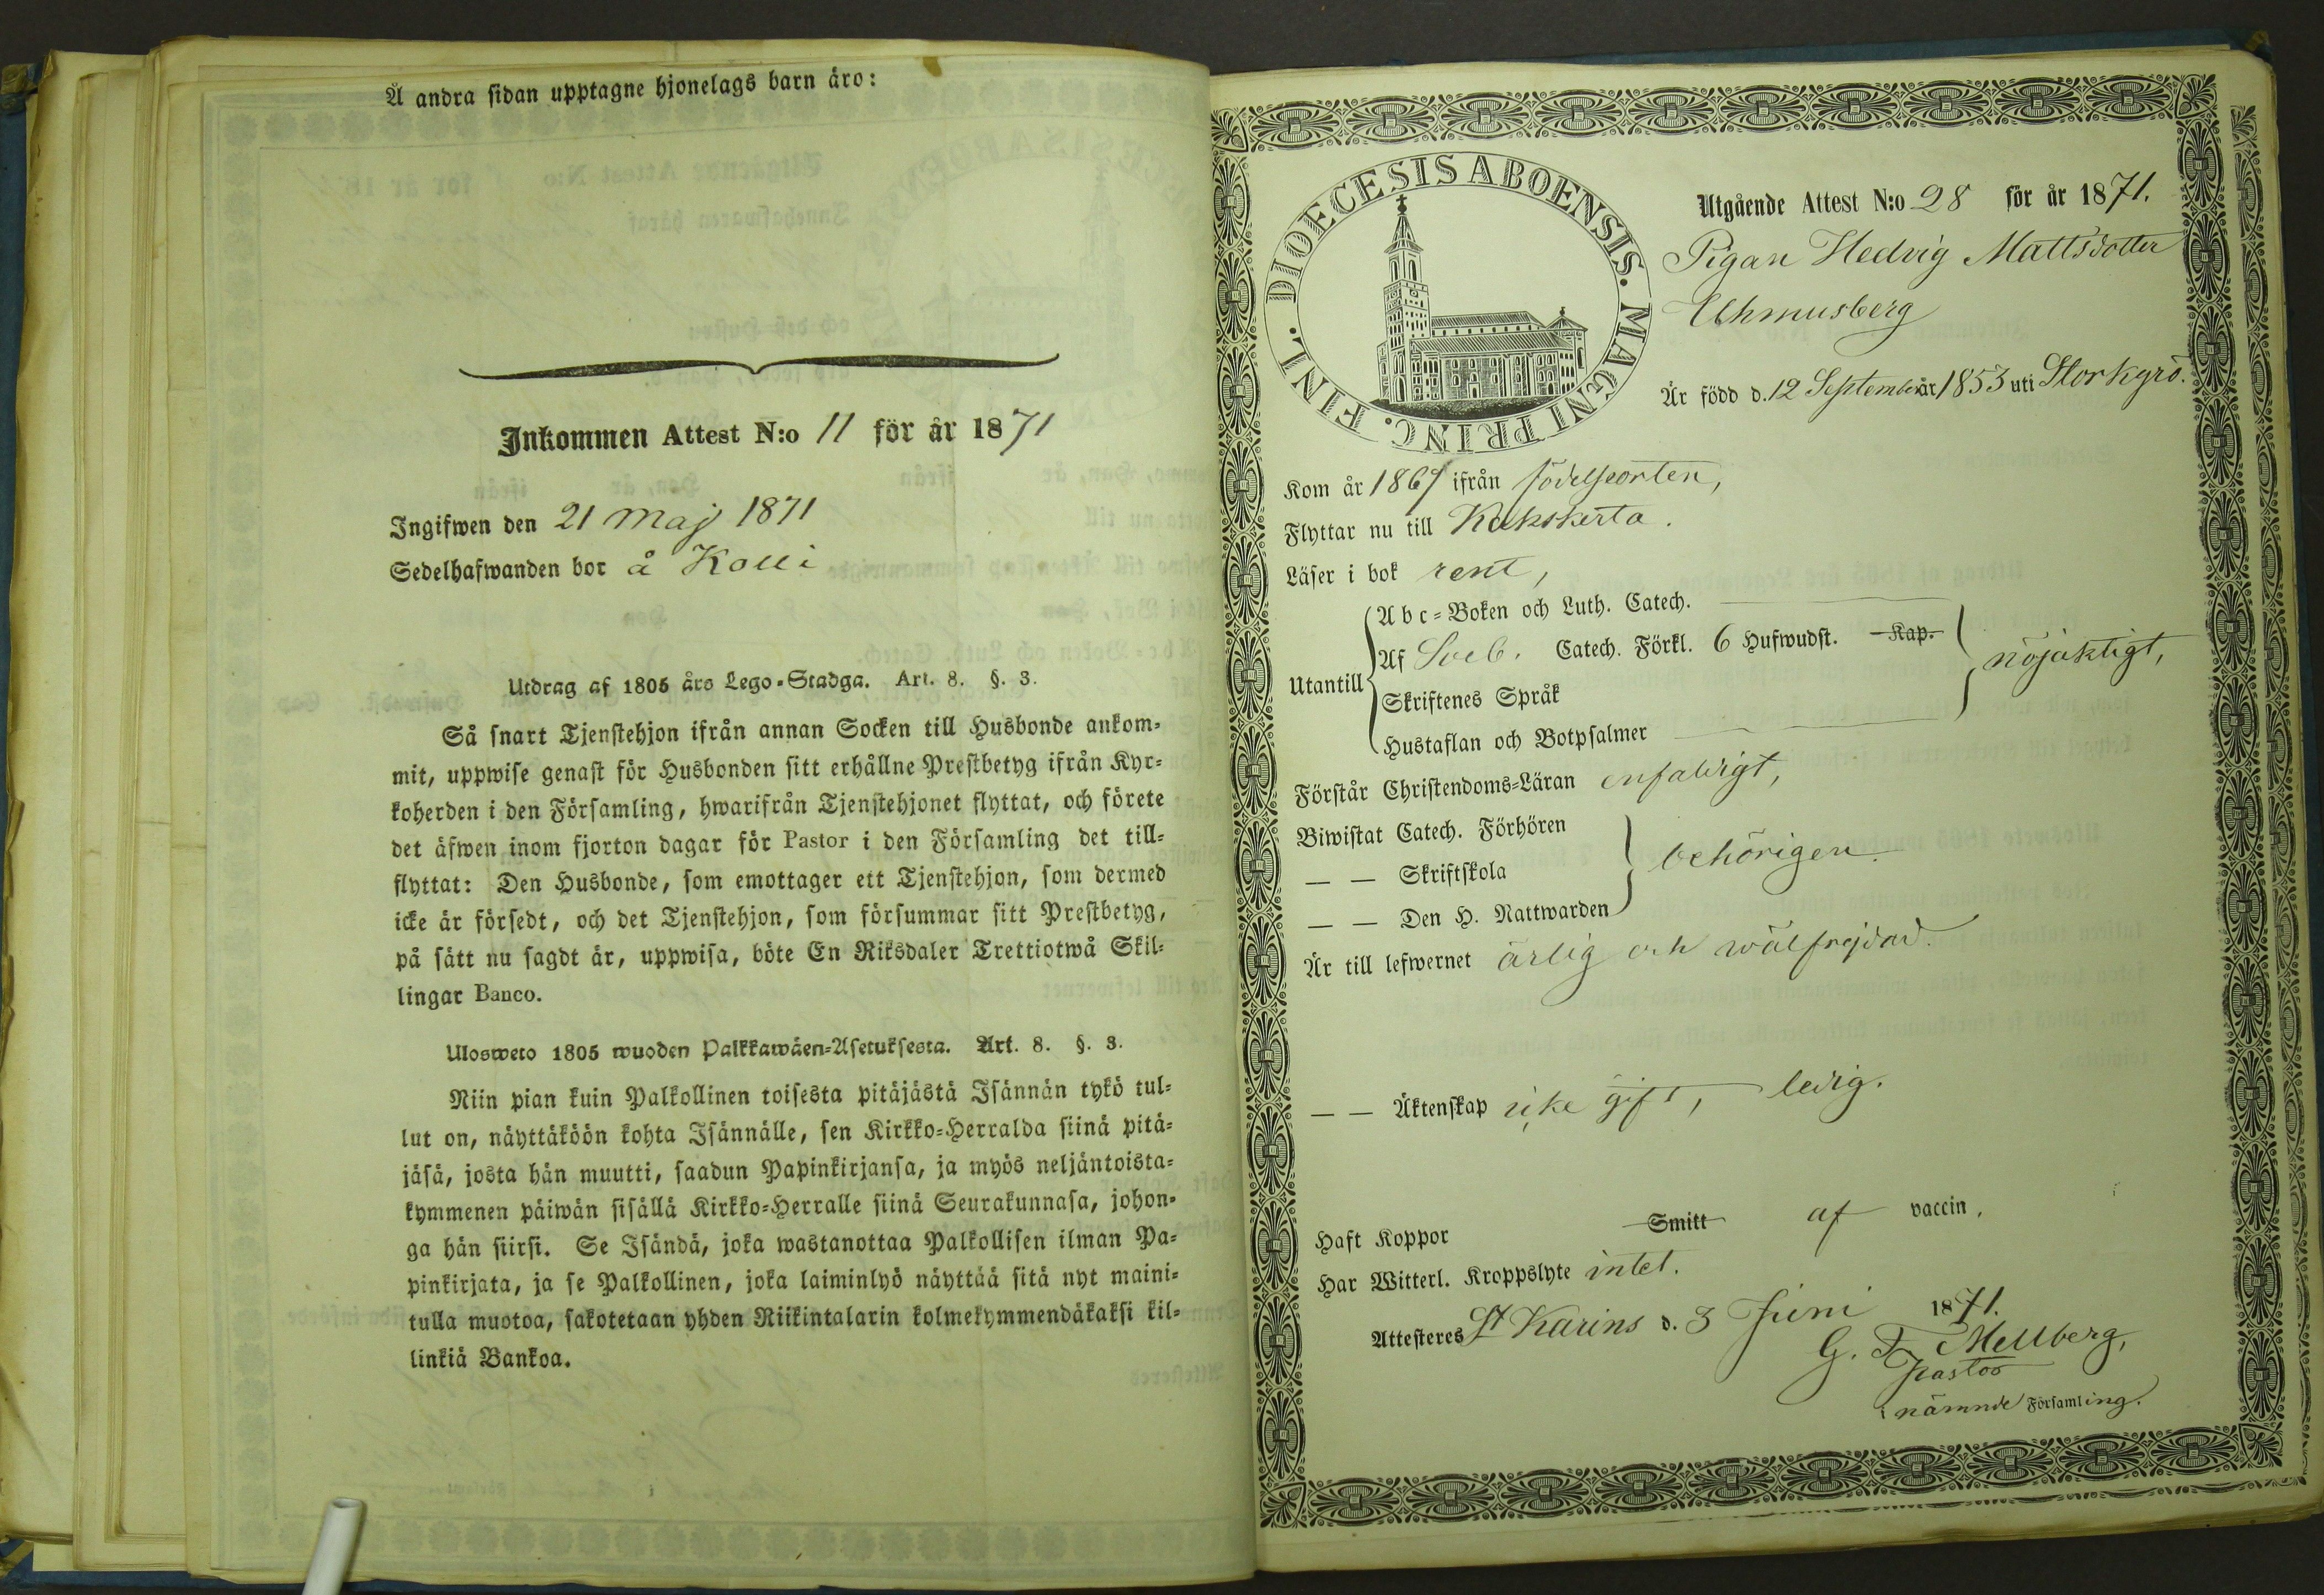 Å andra sidan upptagne hjonelags barn äro:
Inkommen Attest N:o 11 för år 1871
Ingifwen den 21 Maj 1871
Sedelhafwanden bor å Kolli
Utdrag af 1805 års Lego-Stadga. Art. 8. §. 3.
Så snart Tjenstehjon ifrån annan Socken till Husbonde ankom-
mit, uppwise genast för Husbonden sitt erhållne Prestbetyg ifrån Kyr-
koherden i den Församling, hwarifrån Tjenstehjonet flyttat, och förete
det äfwen inom fjorton dagar för Pastor i den Församling det till-
flyttat: Den Husbonde, som emottager ett Tjenstehjon, som dermed
icke är försedt, och det Tjenstehjon, som försummar sitt Prestbetyg,
på sätt nu sagdt är, uppwisa, böte En Riksdaler Trettiotwå Skil-
lingar Banco.
Ulosweto 1805 wuoden Palkkawäen-Asetuksesta. Art. 8. §. 3.
Niin pian kuin Palkollinen toisesta pitäjästä Isännän tykö tul-
lut on, näyttäköön kohta Isännälle, sen Kirkko-Herralda siinä pitä-
jäsä, josta hän muutti, saadun Papinkirjansa, ja myös neljäntoista-
kymmenen päiwän sisällä Kirkko-Herralle siinä Seurakunnasa, johon-
ga hän siirsi. Se Isändä, joka wastanottaa Palkollisen ilman Pa-
pinkirjata, ja se Palkollinen, joka laiminlyö näyttää sitä nyt maini-
tulla muotoa, sakotetaan yhden Riikintalarin kolmekymmendäkaksi kil-
linkiä Bankoa.
DIOECESIS ABOENSIS. MAGNI PRINC. FINL.
Utgående Attest N:o 28 för år 1871.
Pigan Hedvig Mattsdotter
Uhmusberg
Är född d. 12 September år 1853 uti Storkyrö.
Kom år 1867 ifrån födelseorten,
Flyttar nu till Kakskerta.
Läser i bok rent,
Utantill
Abc-Boken och Luth. Catech.
Af Sveb. Catech. Förkl. 6 Hufwudst. Kap.
Skriftenes Språk
Hustaflan och Botpsalmer
nöjaktigt,
Förstår Christendoms-Läran enfaldigt,
Biwistat Catech. Förhören
— — Skriftskola
— — Den H. Nattwarden
behörigen.
Är till lefwernet ärlig och wälfrejdad.
— — Äktenskap icke gift, ledig.
Haft Koppor Smitt af vaccin.
Har Witterl. Kroppslyte intet.
Attesteres St Karins d. 3 Juni 1871.
G. F. Hellberg,
Pastor
i nämnde Församling.